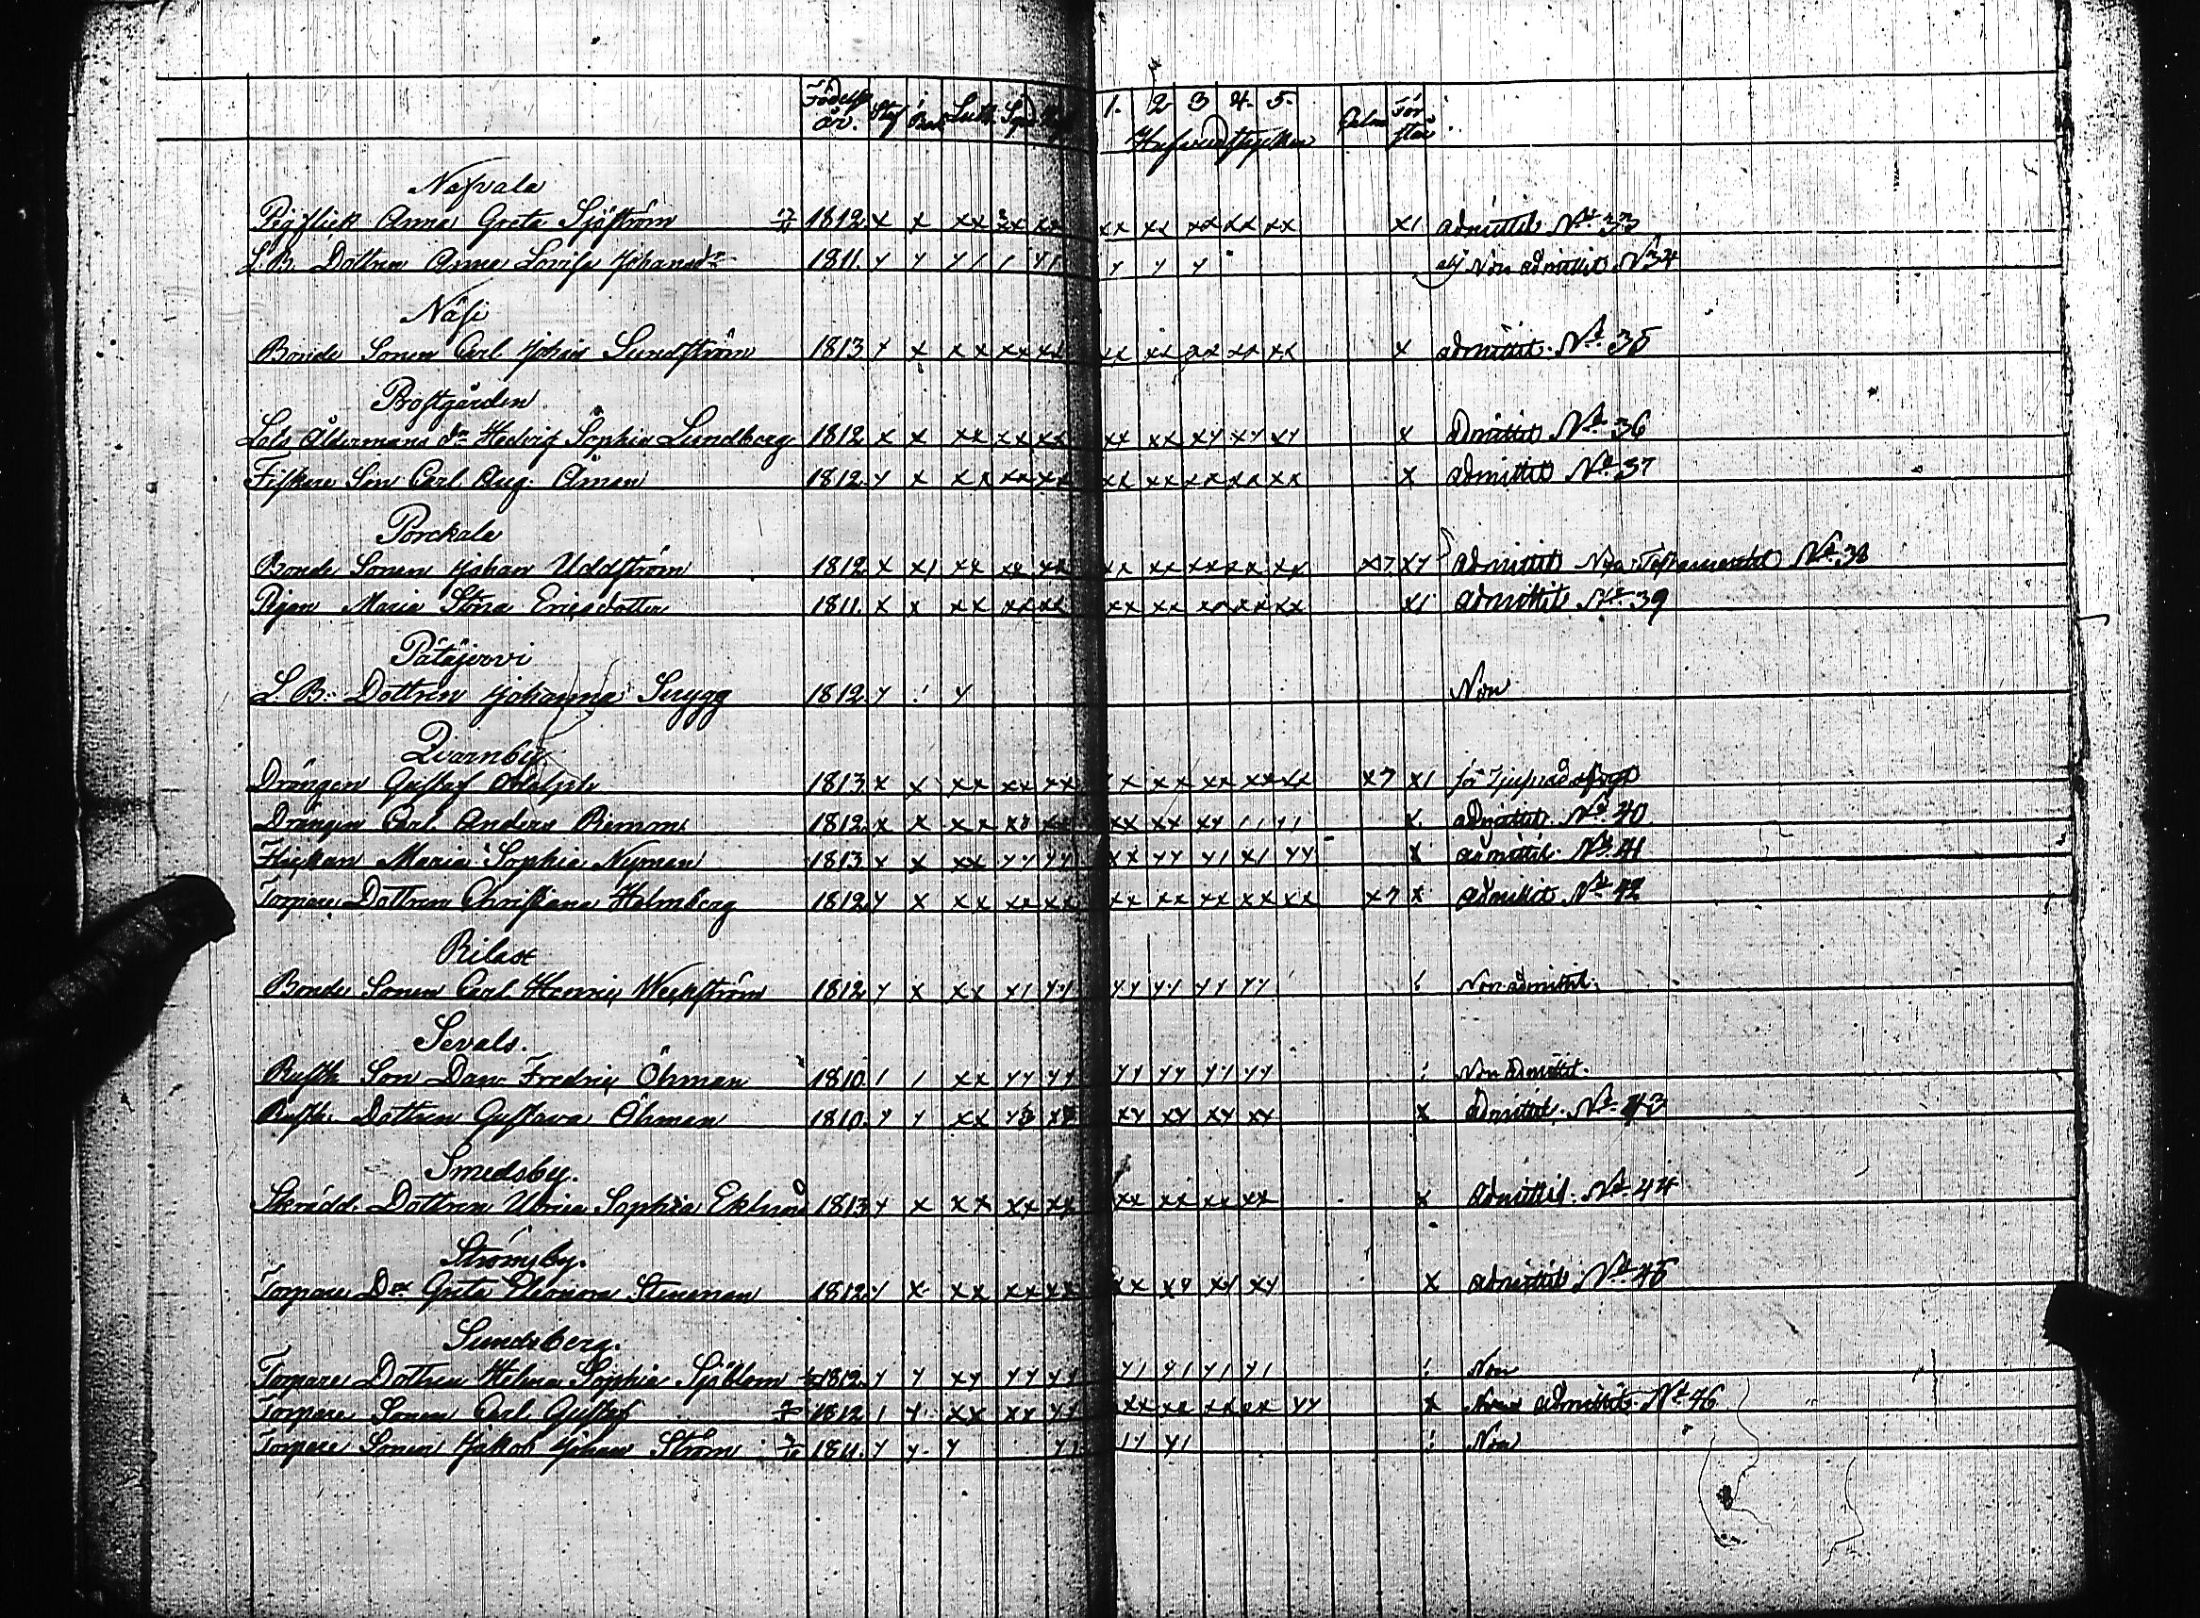 Födelse år. Staf Luth. 1. 2 3 4. 5. Hufvudstycken För står
Nafvala
Pigflick Anna Greta Sjöström 1812. x x xx xx xx xx xx xx xx xx x1 admittit No 33
L. B. Dottren Anna Lovisa Johansdr 1811. y y y1 1 y1 y y y ej Non admittit No 34
Näse
Bonde Sonen Carl Johan Sundström 1813 y x xx xx xx xx xx xx xx xx x admittit. No 35
Prostgården
Lots Åldermans dr Hedvig Sophia Lundberg 1812 x x xx xx xx xx xx xy xy xy x admittit No 36
Fiskare Son Carl Aug. Öman 1812. y x xx xx xx xx xx xx xx xx x admittit No 37
Porckala
Bonde Sonen Johan Uddström 1812 x x1 xx xx xx xx xx xx xx xx x7 xy admittit Nya Testamentet No 38
Pigan Maria Stina Ericsdotter 1811. x x xx xx xx xx xx xx xx xx x1 admittit No 39
Pätäjervi
L. B. Dottren Johanna Snygg 1812. y y Non
Qvarnby
Drängen Gustaf Adolph 1813. x x xx xx xx xx xx xx xx xx x7 x1 för
Drängen Carl Anders 1812. x x xx xx xx xy 11 y1 x admittit. No 40
Flickan Maria Sophia Nyman 1813. x x xx yy yy xx yy y1 x1 yy x admittit. No 41
Torpare Dottren Christiana Holmberg 1812 y x xx xx xx xx xx xx xx xx x7 x admittit No 42
Rilax
Bonde Sonen Carl Henric Weckström 1812 y x xx x1 yy yy yy yy yy Non admittit.
Sevals.
Rusth. Son Dan. Fredric Öhman 1810 1 1 xx yy yy yy yy y1 yy Non admittit.
Rusth. Dottren Gustava Öhman 1810. y y xx xy xy xy xy x admittit. No 43
Smedsby.
Skrädd. Dottren Ulrica Sophia Eklund 1813 y x xx xx xx xx xx xx xx x admittit. No 44
Strömsby.
Torpare Dr Greta Eleonora Stenman 1812. y x xx xx xx xx xy xy xy x admittit No 45
Sundsberg.
Torpare Dottren Helena Sophia Sjöblom 1812. y y xy yy yy y1 y1 y1 y1 Non
Torpare Sonen Carl Gustaf 1812 1 y xx xy yy xx xx xx xx yy x admittit. No 46
Torpare Sonen Jakob Johan Ström 1811. y y y y1 1y y1 Non